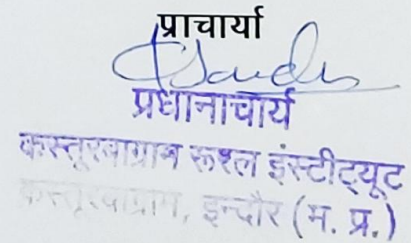 प्राचार्या
प्रधानाचार्य
कस्तूरबाग्राम रूरल इंस्टीट्यूट
कस्तूरबाग्राम, इन्दौर (म. प्र.)